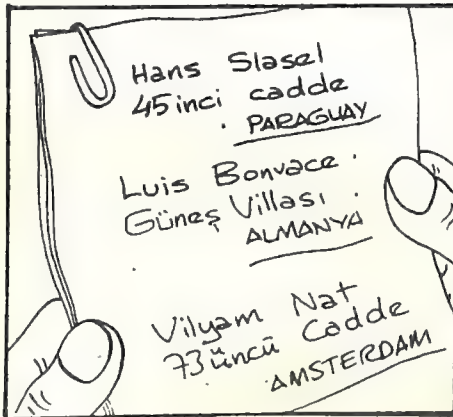 Hans Slasel
45inci cadde
. PARAGUAY
Luis Bonvace.
Güneş Villası.
ALMANYA
Vilyam Nat
73üncü Cadde
AMSTERDAM